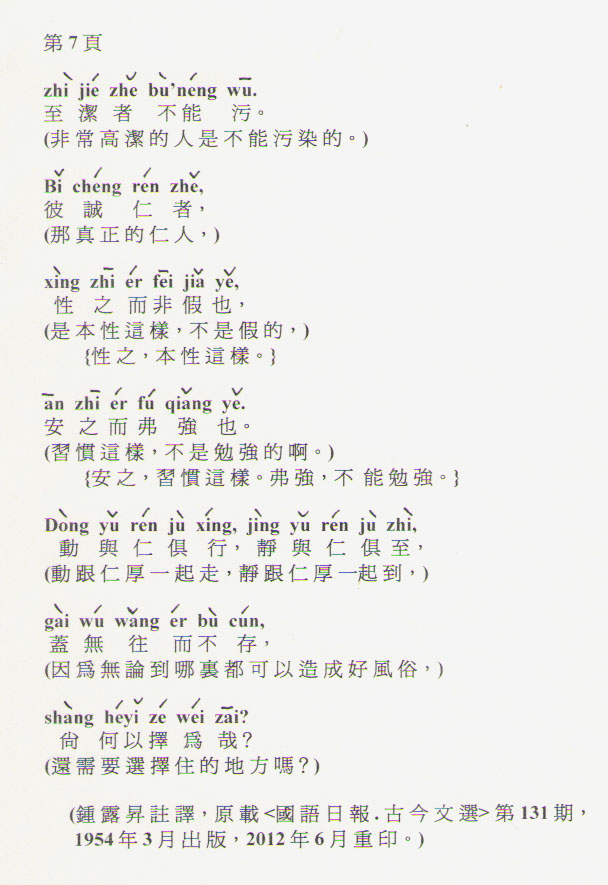 第7頁
zhì jié zhě bù'néng wū.
至潔者 不能 污。
(非常高潔的人是不能污染的。)
Bǐ chéng rén zhě,
彼 誠 仁 者，
(那真正的仁人，)
xìng zhī ér fēi jiǎ yě,
性 之 而非 假 也，
(是本性這樣，不是假的，)
{性之，本性這樣。}
ān zhī ér fú qiǎng yě.
安 之 而 弗 強 也。
(習慣這樣，不是勉強的啊。)
{安之，習慣這樣。弗強，不 能勉強。}
Dòng yǔ rén jù xíng, jìng yǔ rén jù zhì,
動 與 仁 俱 行，靜 與 仁 俱 至，
(動跟仁厚一起走，靜跟仁厚一起到，)
gài wú wǎng ér bù cún,
蓋 無 往 而 不 存，
(因爲無論到哪裏都可以造成好風俗，)
shàng héyǐ zé wéi zāi?
尙 何以擇 爲 哉？
(還需要選擇住的地方嗎？)
(鍾露昇註譯，原載<國語日報.古今文選>第131期，
1954年3月出版，2012年6月重印。)